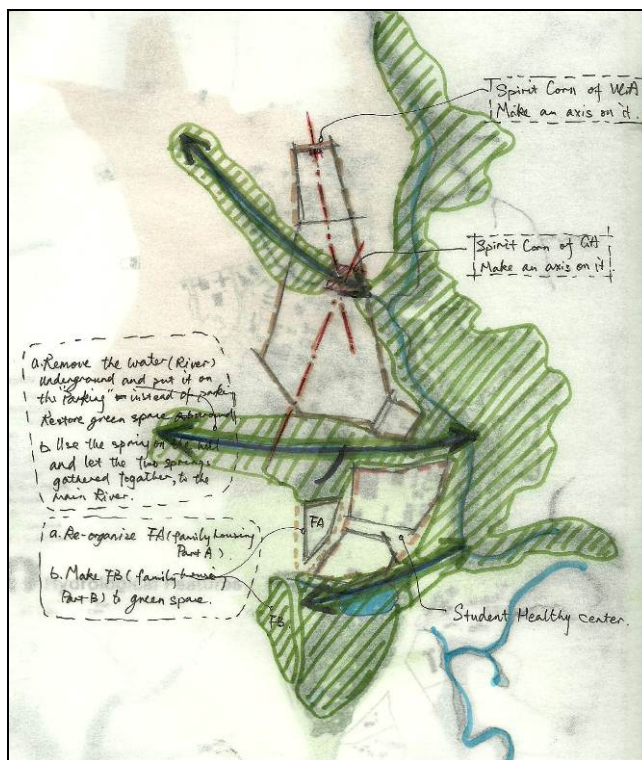 Spirit Corn of UGA
Make an axis on it.
Spirit Corn of GA
Make an axis on it
a. Remove the water (River)
underground and put it on
the "Parking" instead of
Restore green space
b. Use the spring on the
and let the two springs
gathered together, to the
main River.
a. Re-organize FA (family housing
Part A).
b. Make FB (family
Part B) to green space.
FA
FB
Student Healthy center.